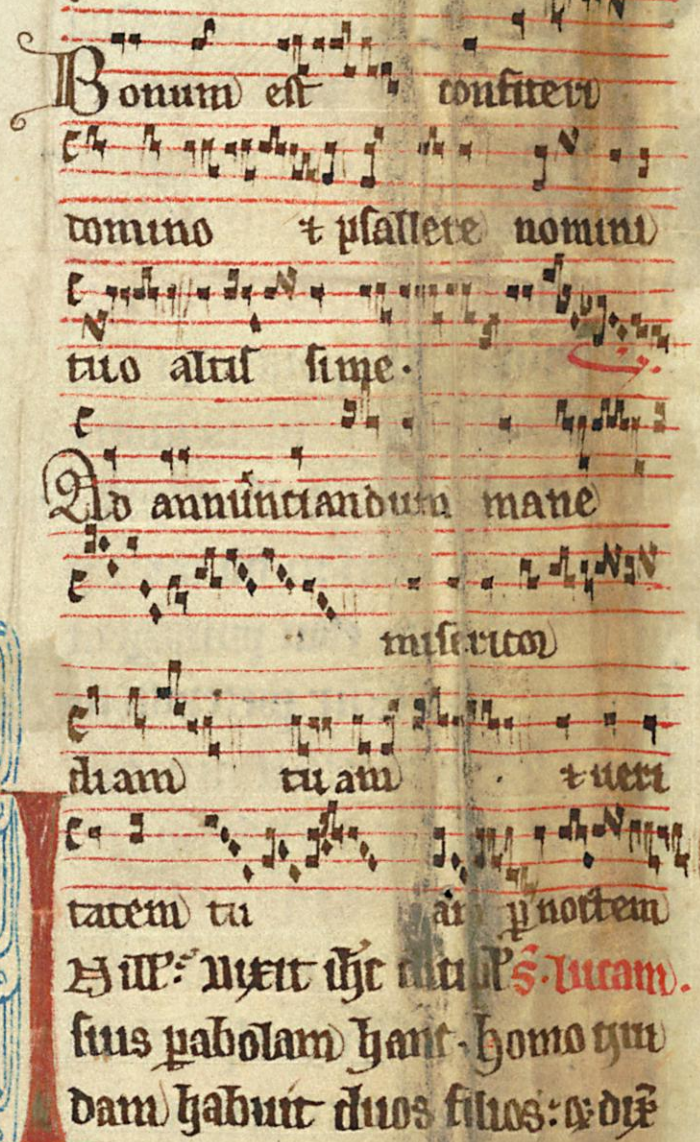 Bonum est confiteri
domino ⁊ psallere nomini
tuo altis sime.
Ad annuntiandum mane
misericor
diam tuam ⁊ veri
tatem tu am ꝑ noctem
dixit ihc S. lucam.
suis ꝑabolam hanc. homo qui
dam habuit duos filios: ⁊ dix̄